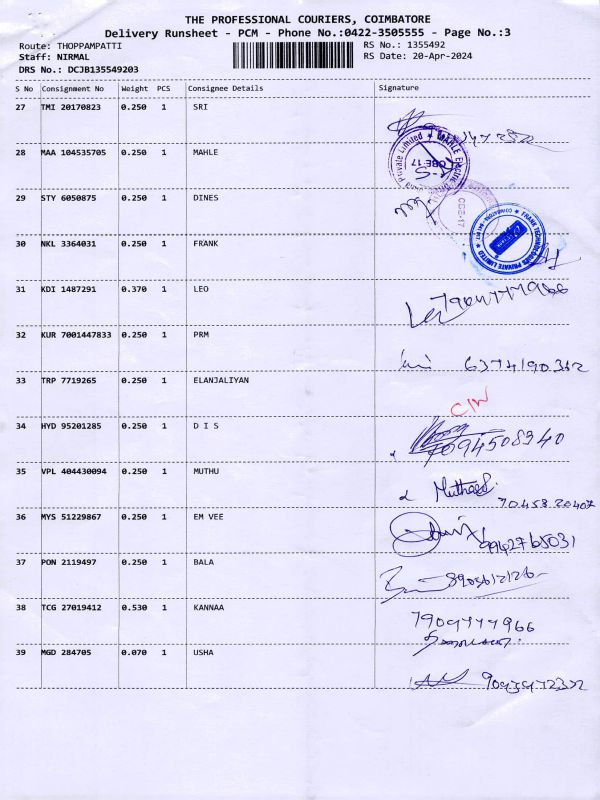 THE PROFESSIONAL COURIERS, COIMBATORE
Delivery Runsheet - PCM - Phone No.:0422-3505555 - Page No.:3
Route: THOPPAMPATTI RS No.: 1355492
Staff: NIRMAL RS Date: 20-Apr-2024
DRS No.: DCJB135549203
S No Consignment No Weight PCS Consignee Details Signature
27 TMI 20170823 0.250 1 SRI
28 MAA 104535705 0.250 1 MAHLE
29 STY 6050875 0.250 1 DINES
30 NKL 3364031 0.250 1 FRANK
FRANK TECHNOLOGIES PRIVATE LIMITED
31 KDI 1487291 0.370 1 LEO
32 KUR 7001447833 0.250 1 PRM
6374190352
33 TRP 7719265 0.250 1 ELANJALIYAN
34 HYD 95201285 0.250 1 D I S
35 VPL 404430094 0.250 1 MUTHU
70458 20407
36 MYS 51229867 0.250 1 EM VEE
9942765031
37 PON 2119497 0.250 1 BALA
38 TCG 27019412 0.530 1 KANNAA
39 MGD 284705 0.070 1 USHA